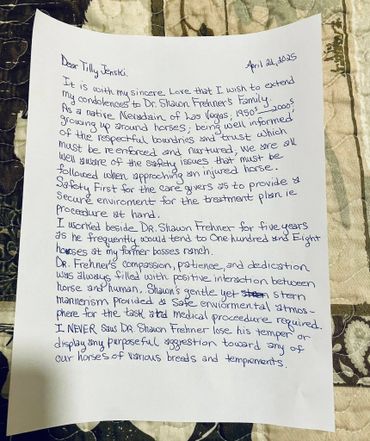 Dear Tilly Jenski. April 24, 2025
It is with my sincere Love that I wish to extend
my condolences to Dr. Shawn Frehner's Family
As a native Nevadain of Las Vegas; 1950s - 2000s
growing up around horses; being well informed
of the respectful boundries and trust which
must be reenforced and nurtured, We are all
well aware of the safety issues that must be
followed when approaching an injured horse.
Safety First for the care givers as to provide a
secure enviroment for the treatment plan ie
proceedure at hand.
I worked beside DR. Shawn Frehner for five years
as he frequently would tend to One hundred and Eight
horses at my former bosses ranch.
DR. Frehner's compassion, patience, and dedication
was always filled with positive interaction between
horse and human. Shawn's gentle yet stern
mannerism provided a Safe enviormental atmos-
phere for the task and medical proceedure required.
I NEVER saw DR Shawn Frehner lose his temper or
display any purposeful aggrestion toward any of
our horses of various breeds and tempements.